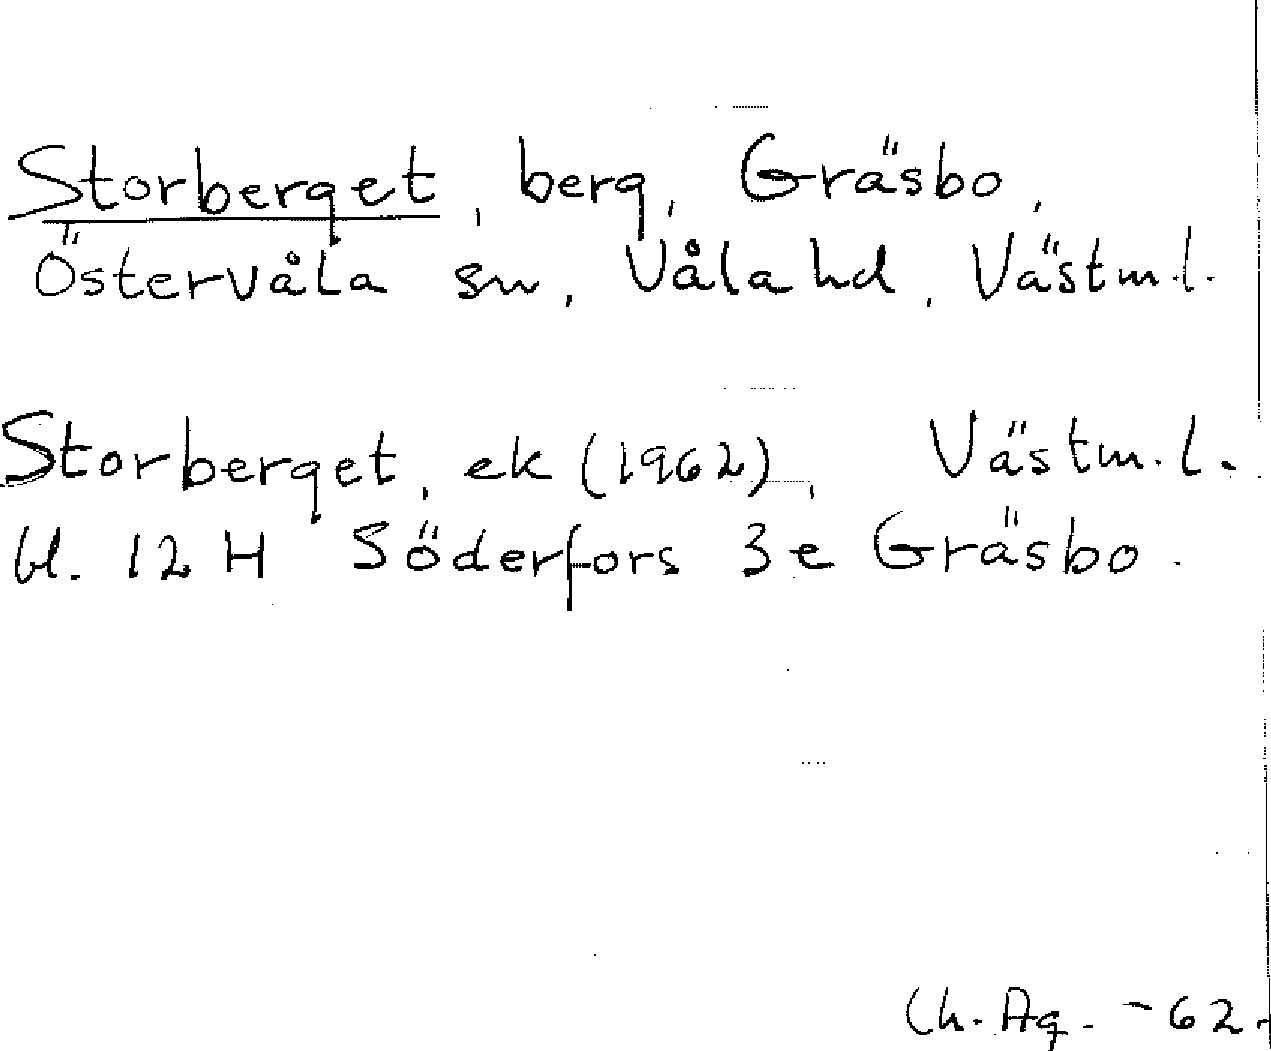 Storberget, berg, Gräsbo,
Östervåla sn, Våla hd, Västm.l.
Storberget, ek (1962), Västm.l.
bl. 12 H Söderfors 3e Gräsbo.
Ch. Ag. -62.